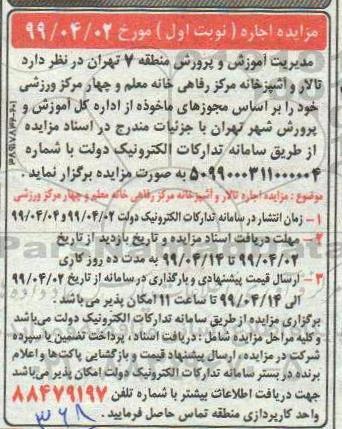 مزایده اجاره ( نوبت اول ) مورخ ۹۹/۰۴/۰۲
مدیریت آموزش و پرورش منطقه ۷ تهران در نظر دارد
تالار و آشپزخانه مرکز رفاهی خانه معلم و چهار مرکز ورزشی
خود را بر اساس مجوزهای ماخوذه از اداره کل آموزش و
پرورش شهر تهران با جزئیات مندرج در اسناد مزایده از
طریق سامانه تدارکات الکترونیک دولت با شماره
۵۰۹۹۰۰۰۳۱۱۰۰۰۰۰۴ به صورت مزایده برگزار نماید .
موضوع : مزایده اجاره تالار و آشپزخانه مرکز رفاهی خانه معلم و چهار مرکز ورزشی
۱ – زمان انتشار در سامانه تدارکات الکترونیک دولت ۹۹/۰۴/۰۲ و ۹۹/۰۴/۰۴
۲ – مهلت دریافت اسناد مزایده و تاریخ بازدید از تاریخ
۹۹/۰۴/۰۲ تا ۹۹/۰۴/۱۴ به مدت ده روز کاری
۳ – ارسال قیمت پیشنهادی و بارگذاری در سامانه از تاریخ ۹۹/۰۴/۰۲
الی ۹۹/۰۴/۱۴ تا ساعت ۱۱ امکان پذیر می باشد .
برگزاری مزایده از طریق سامانه تدارکات الکترونیک دولت می‌باشد
و کلیه مراحل مزایده شامل : دریافت اسناد ، پرداخت تضمین یا سپرده
شرکت در مزایده ، ارسال پیشنهاد قیمت و بازگشایی پاکت‌ها و اعلام
برنده در بستر سامانه تدارکات الکترونیک دولت امکان پذیر می‌باشد
جهت دریافت اطلاعات بیشتر با شماره تلفن ۸۸۴۷۹۱۹۷
واحد کارپردازی منطقه تماس حاصل فرمایید .